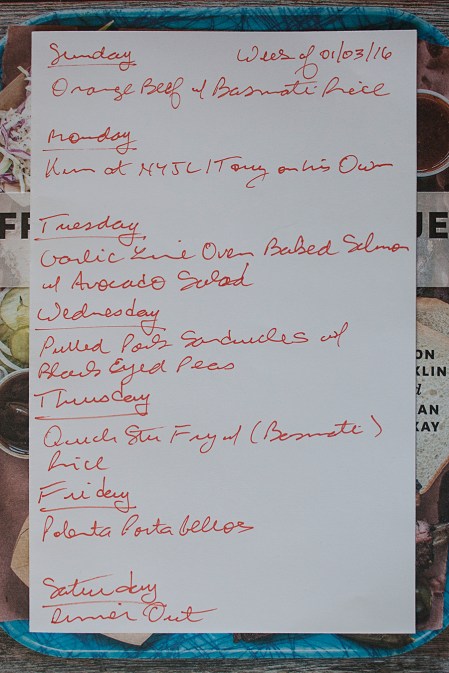 Sunday Week of 01/03/16
Orange Beef w/ Basmati Rice
Monday
Kim at NYJL/Tony on his Own
Tuesday
Garlic Lime Oven Baked Salmon
w/ Avocado Salad
Wednesday
Pulled Pork Sandwiches w/
Black Eyed Peas
Thursday
Quick Stir Fry w/ (Basmati)
Rice
Friday
Polenta Portabellos
Saturday
Dinner Out
F
UE
ON
KLIN
AN
KAY